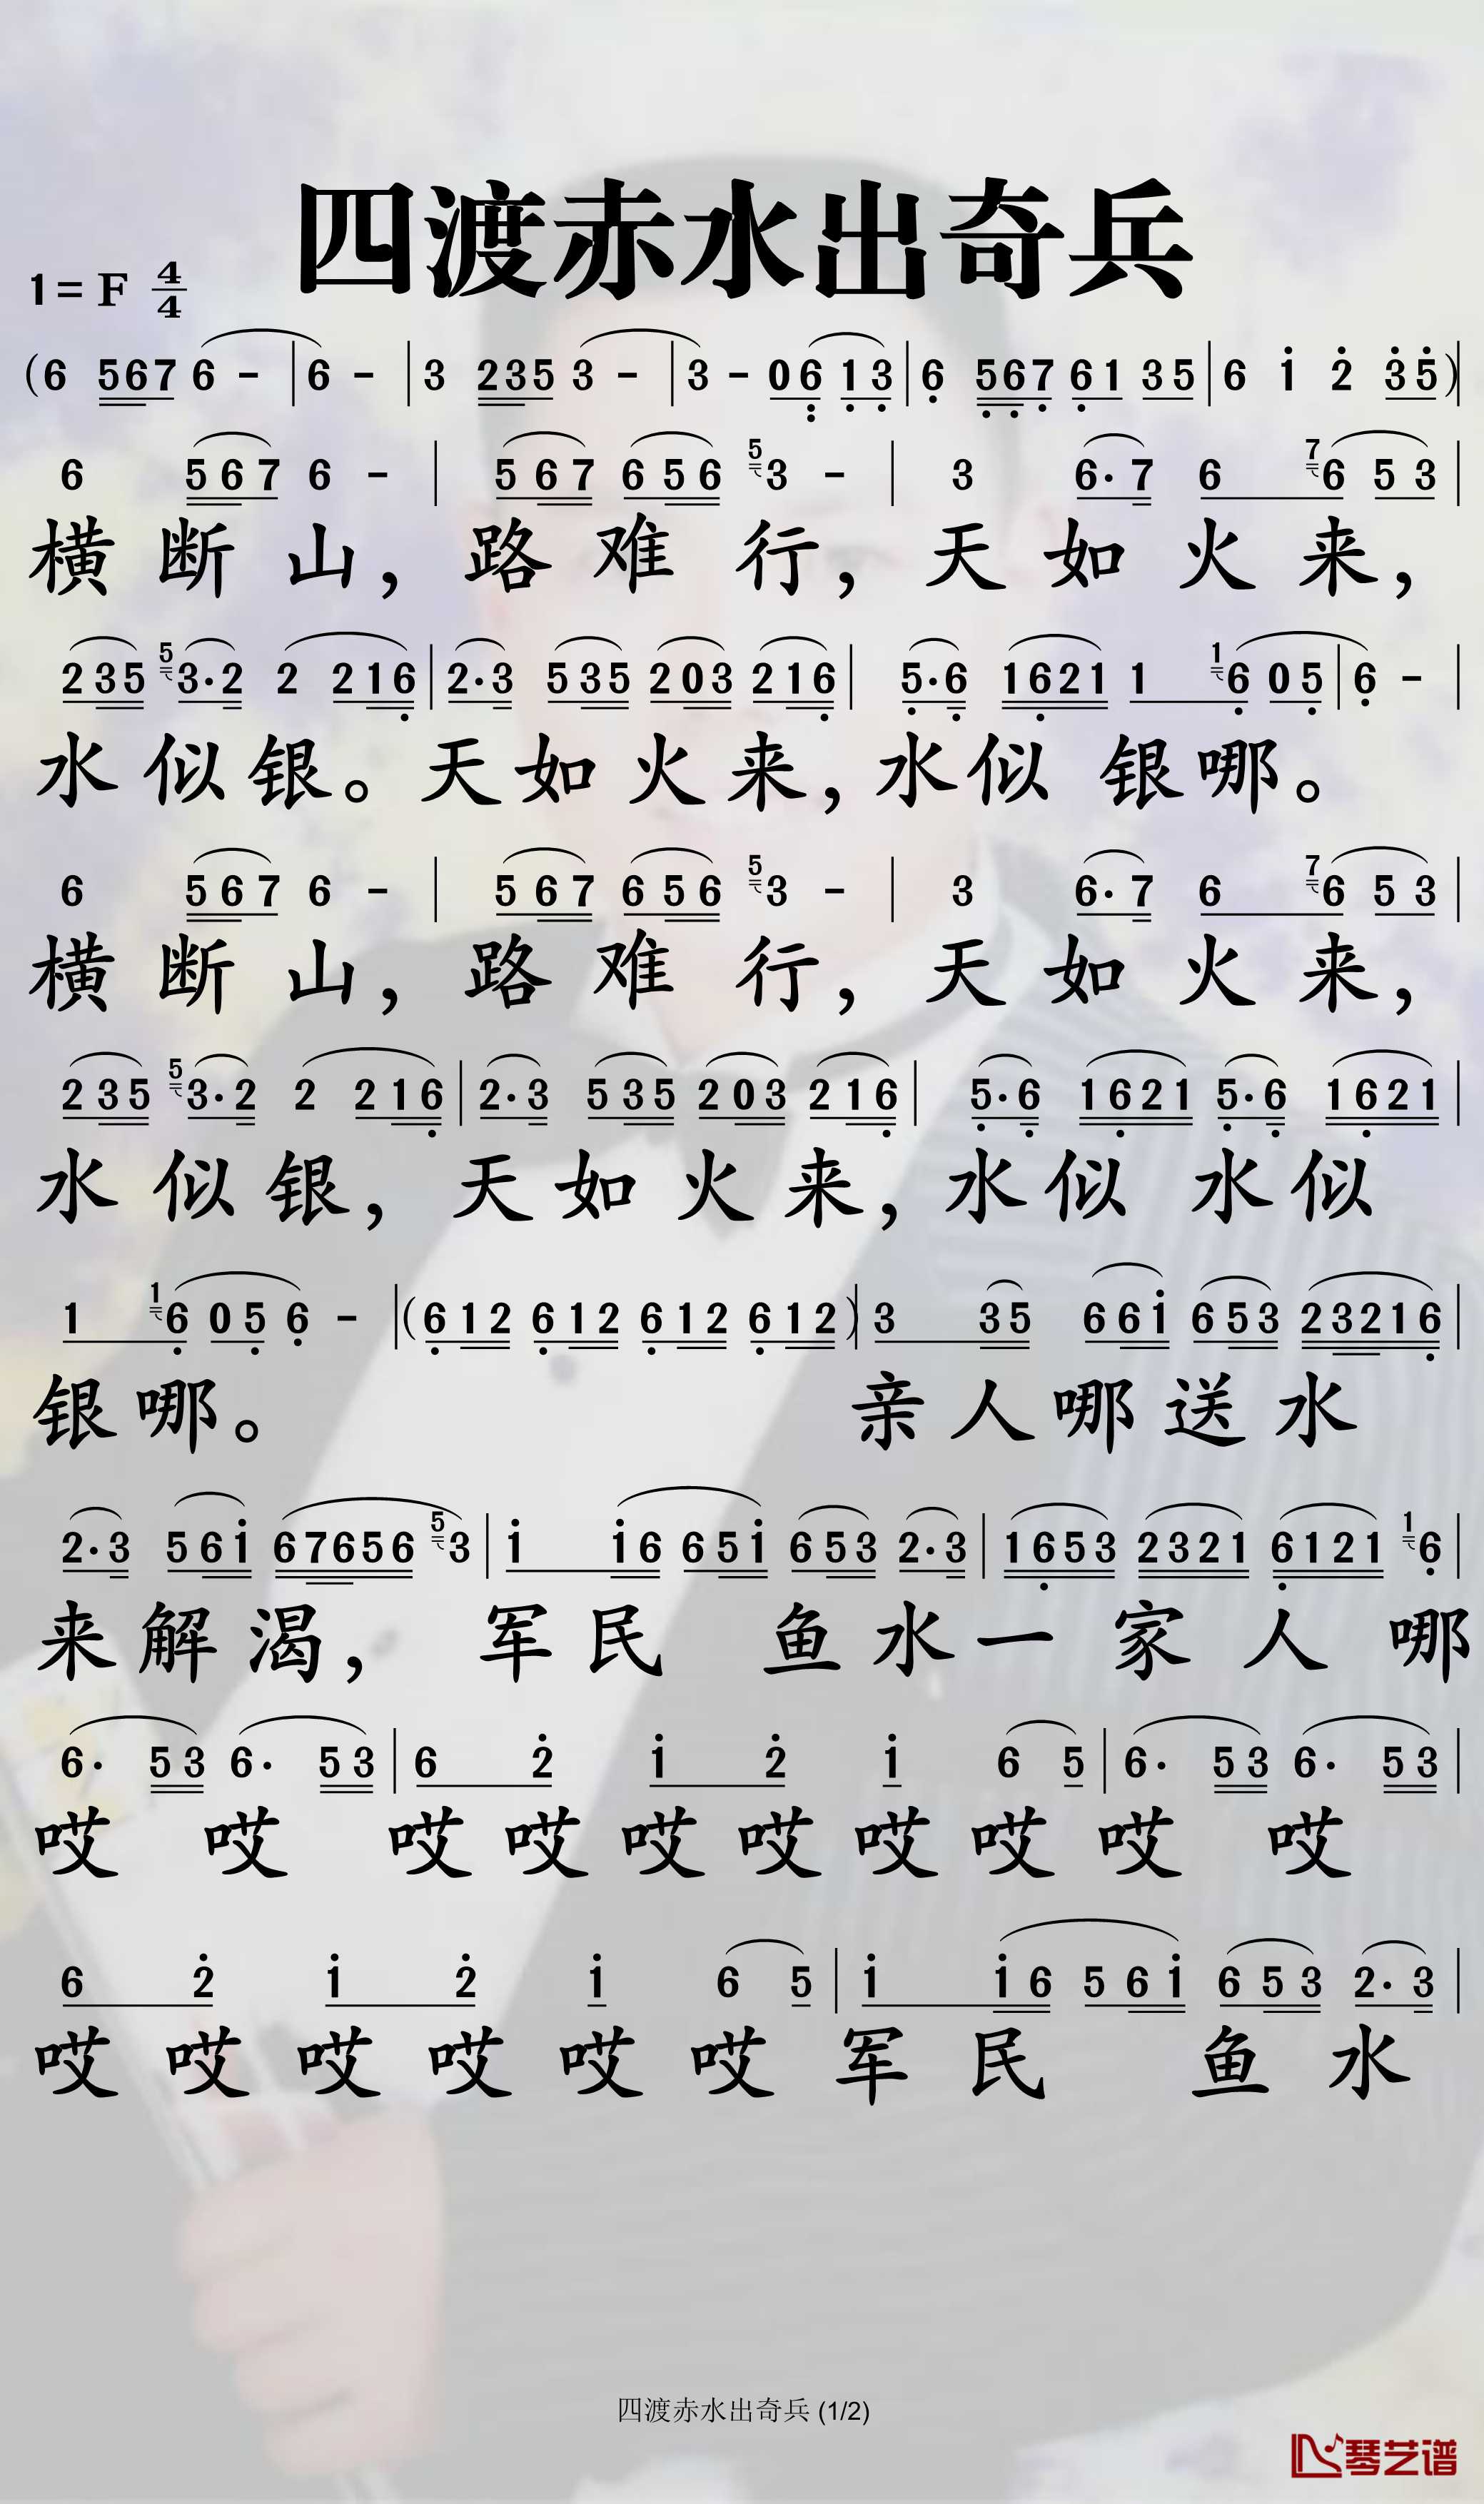 四渡赤水出奇兵
1=F 4/4
(6 567 6 - | 6 - | 3 235 3 - | 3 - 06 13 | 6 567 61 35 | 6 1 2 35)|
6 567 6 - | 567 656 5 3 - | 3 6·7 6 7 6 53 |
横断山，路难行，天如火来，
235 5 3·2 2 216 | 2·3 535 203 216 | 5·6 1621 1 1 6 05 | 6 - |
水似银。天如火来，水似银哪。
6 567 6 - | 567 656 5 3 - | 3 6·7 6 7 6 53 |
横断山，路难行，天如火来，
235 5 3·2 2 216 | 2·3 535 203 216 | 5·6 1621 5·6 1621 |
水似银，天如火来，水似水似
1 1 6 05 6 - |(612 612 612 612)| 3 35 661 653 23216 |
银哪。亲人哪送水
2·3 561 67656 5 3 | 1 16 651 653 2·3 | 1653 2321 6121 1 6 |
来解渴，军民鱼水一家人哪
6· 53 6· 53 | 6 2 1 2 1 6 5 | 6· 53 6· 53 |
哎哎哎哎哎哎哎哎哎哎
6 2 1 2 1 6 5 | 1 16 561 653 2·3 |
哎哎哎哎哎哎军民鱼水
四渡赤水出奇兵 (1/2)
琴艺谱